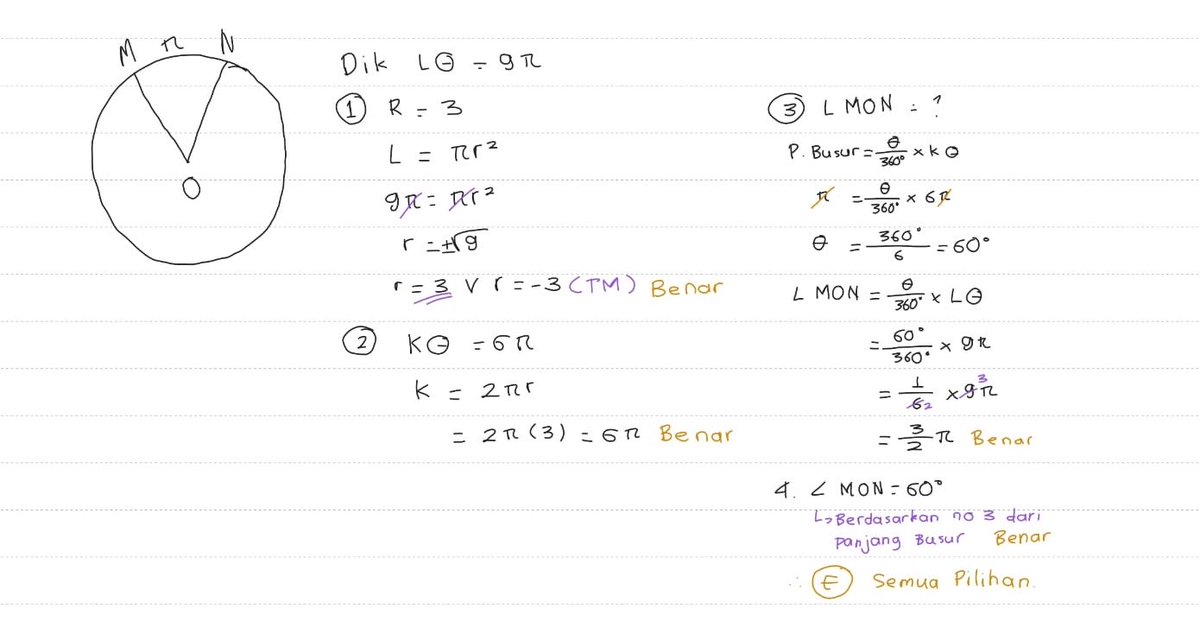 M π N
O
Dik L⊙ = 9π
① R = 3
L = πr²
9π = πr²
r = ±√9
r = 3 V r = -3 (TM) Benar
② K⊙ = 6π
K = 2πr
= 2π(3) = 6π Benar
③ L MON = ?
P. Busur = θ/360° × K⊙
π = θ/360° × 6π
θ = 360°/6 = 60°
L MON = θ/360° × L⊙
= 60°/360° × 9π
= 1/6 2 × 9 3 π
= 3/2 π Benar
4. ∠ MON = 60°
↳ Berdasarkan no 3 dari
panjang Busur Benar
∴ Ⓔ Semua Pilihan.